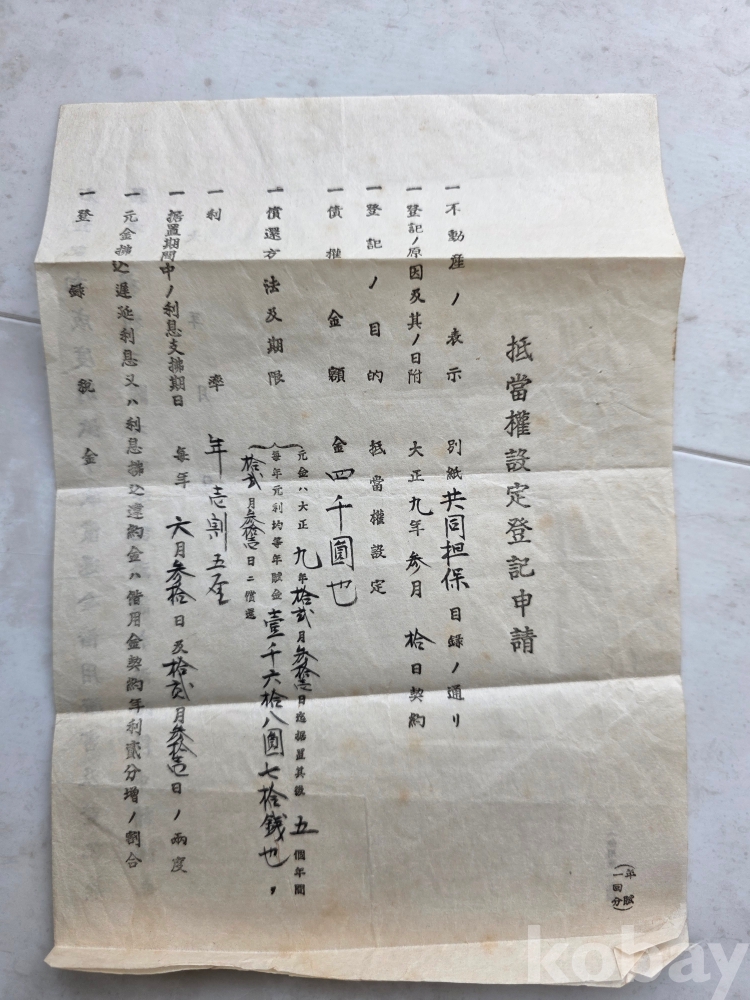 抵當權設定登記申請
一不動産ノ表示 別紙共同担保目録ノ通リ
一登記ノ原因及其ノ日附 大正九年参月拾日契約
一登記ノ目的 抵當權設定
一債權金額 金四千圓也
一償還方法及期限
元金ハ大正九年拾貳月参拾壱日迄据置其後五個年間
每年元利均等年賦金壹千六拾八圓七拾錢也,
拾貳月参拾壱日ニ償還
一利率 年壱割五厘
一据置期間中ノ利息支拂期日 每年六月参拾日及拾貳月参拾壱日ノ兩度
一元金拂込遲延利息又ハ利息拂込違約金ハ借用金契約年利貳分増ノ割合
一登錄稅金
(年賦
一回分)
kobay